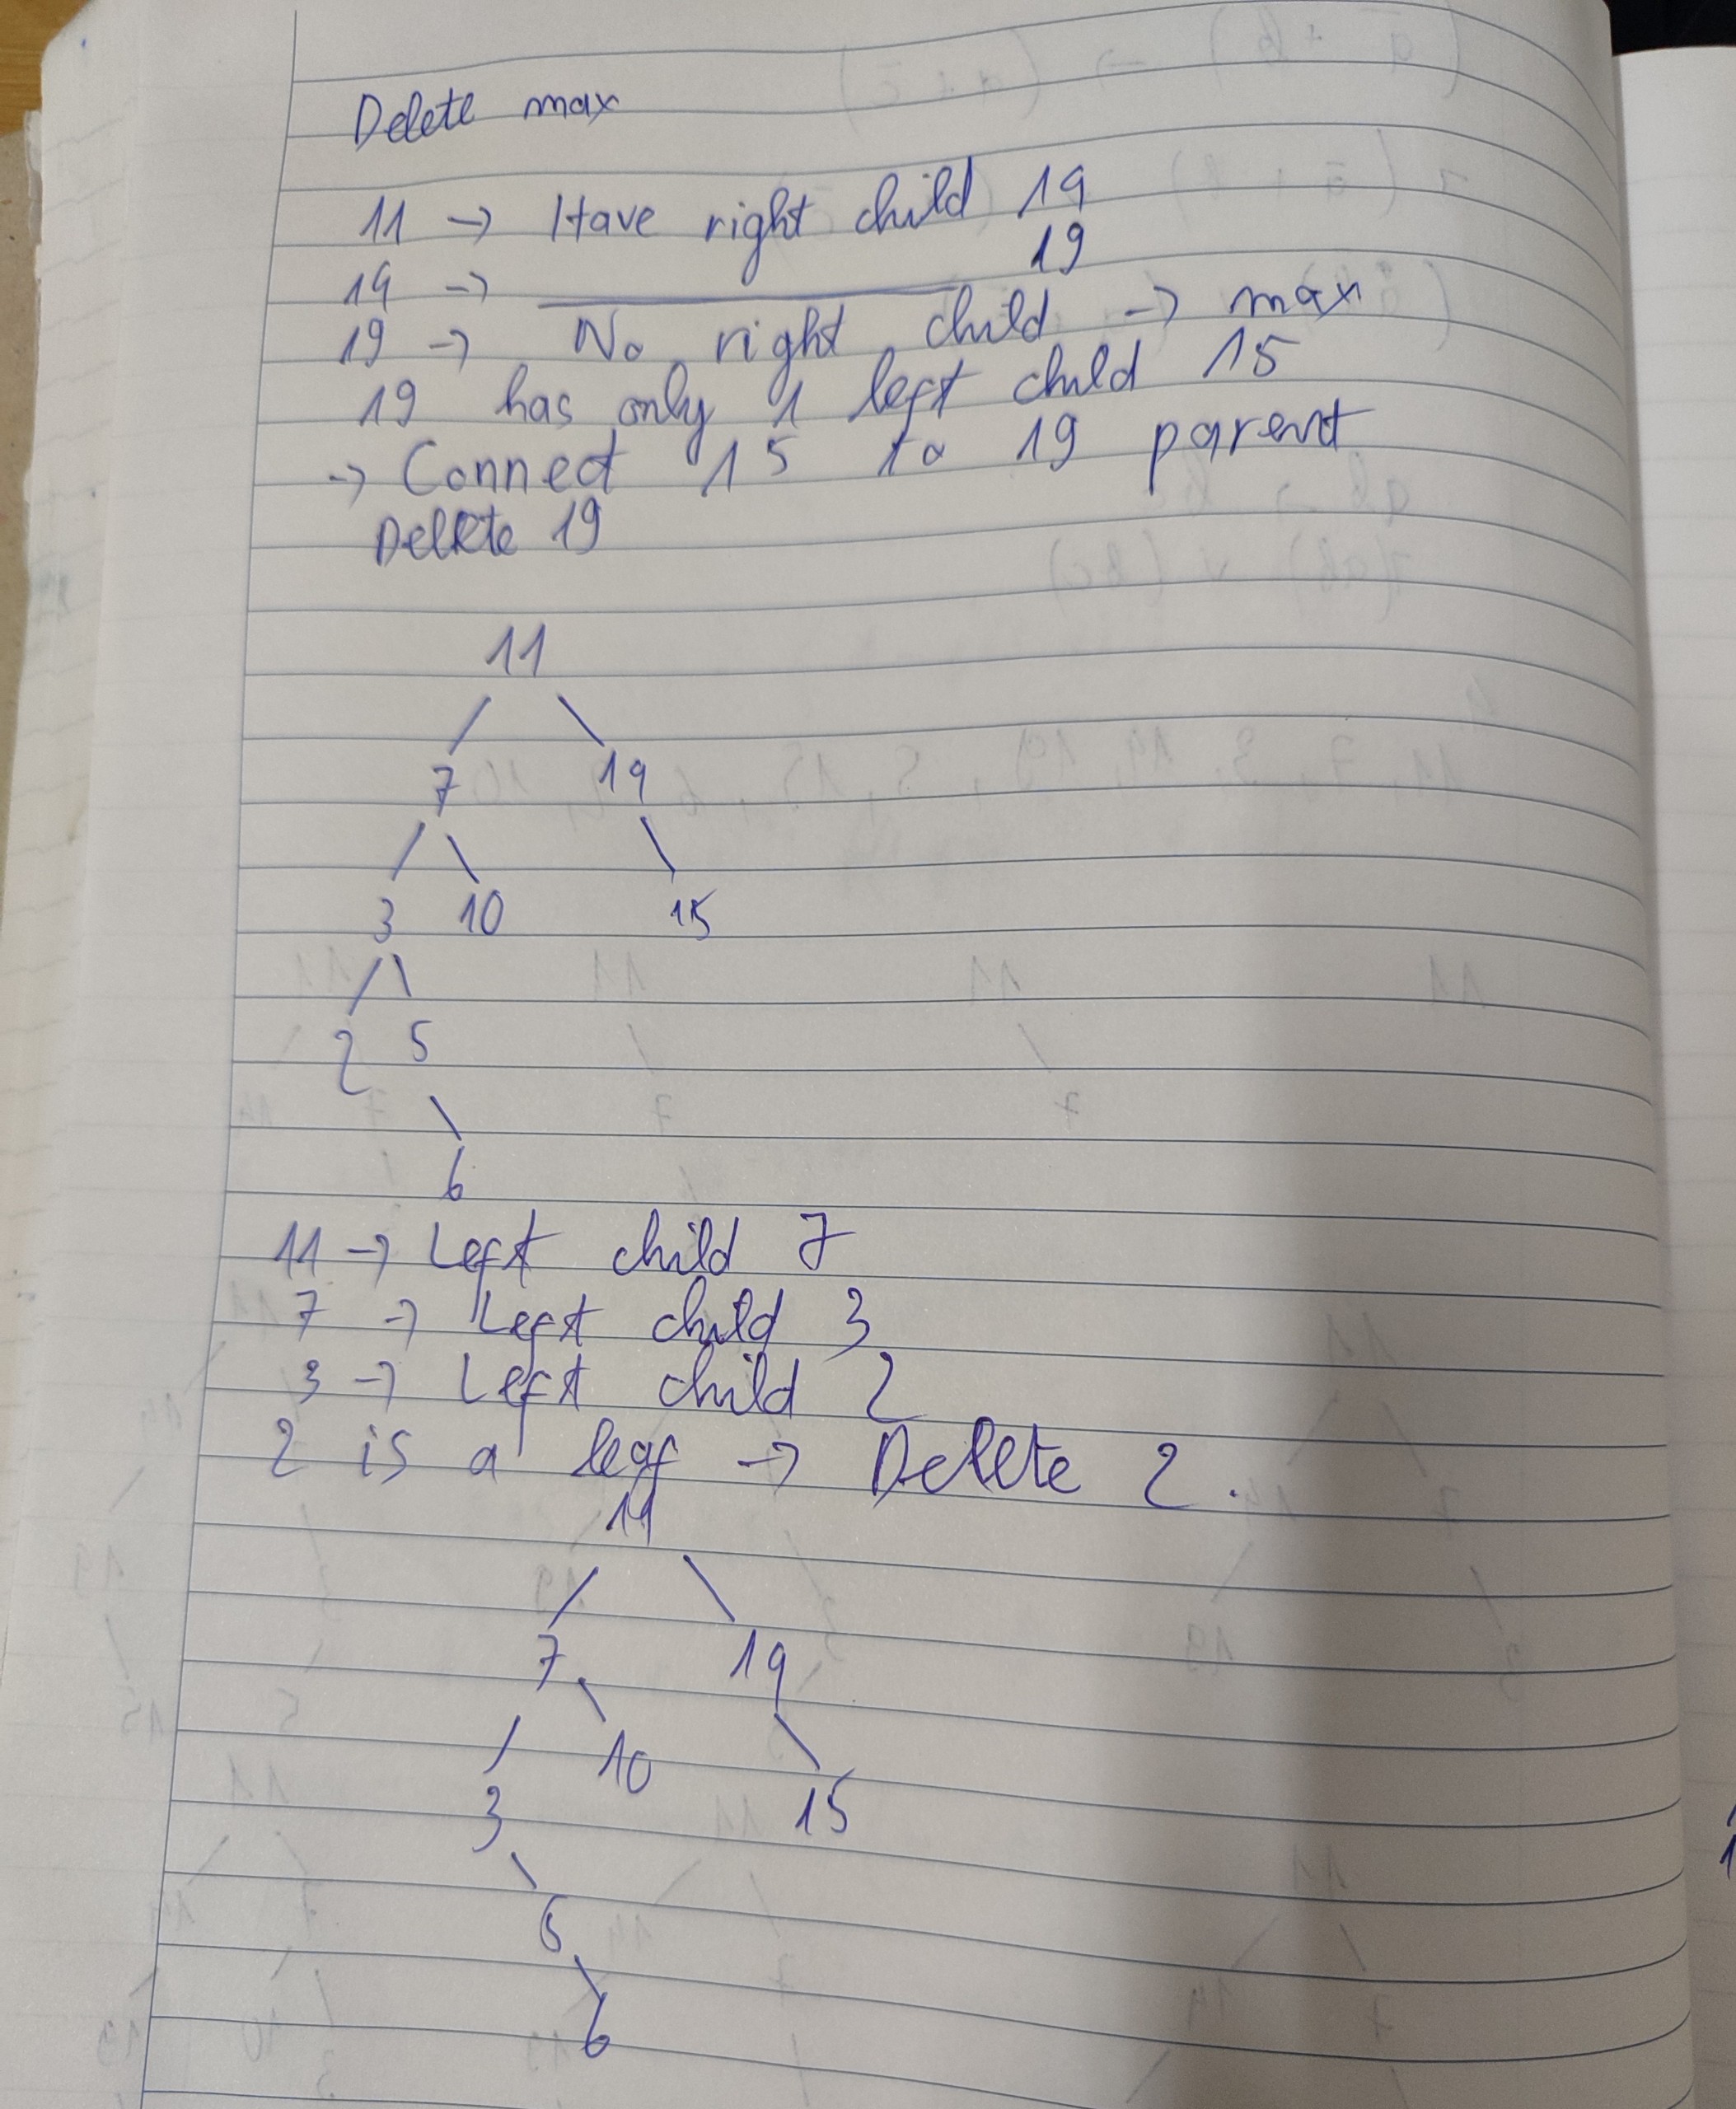 Delete max
11 → Have right child 14
14 → ——— 19
19 → No right child → max
19 has only 1 left child 15
→ Connect 15 to 19 parent
Delete 19
11
7 14
3 10 15
2 5
6
11 → Left child 7
7 → Left child 3
3 → Left child 2
2 is a leaf → Delete 2.
11
7 14
10
3 15
5
6